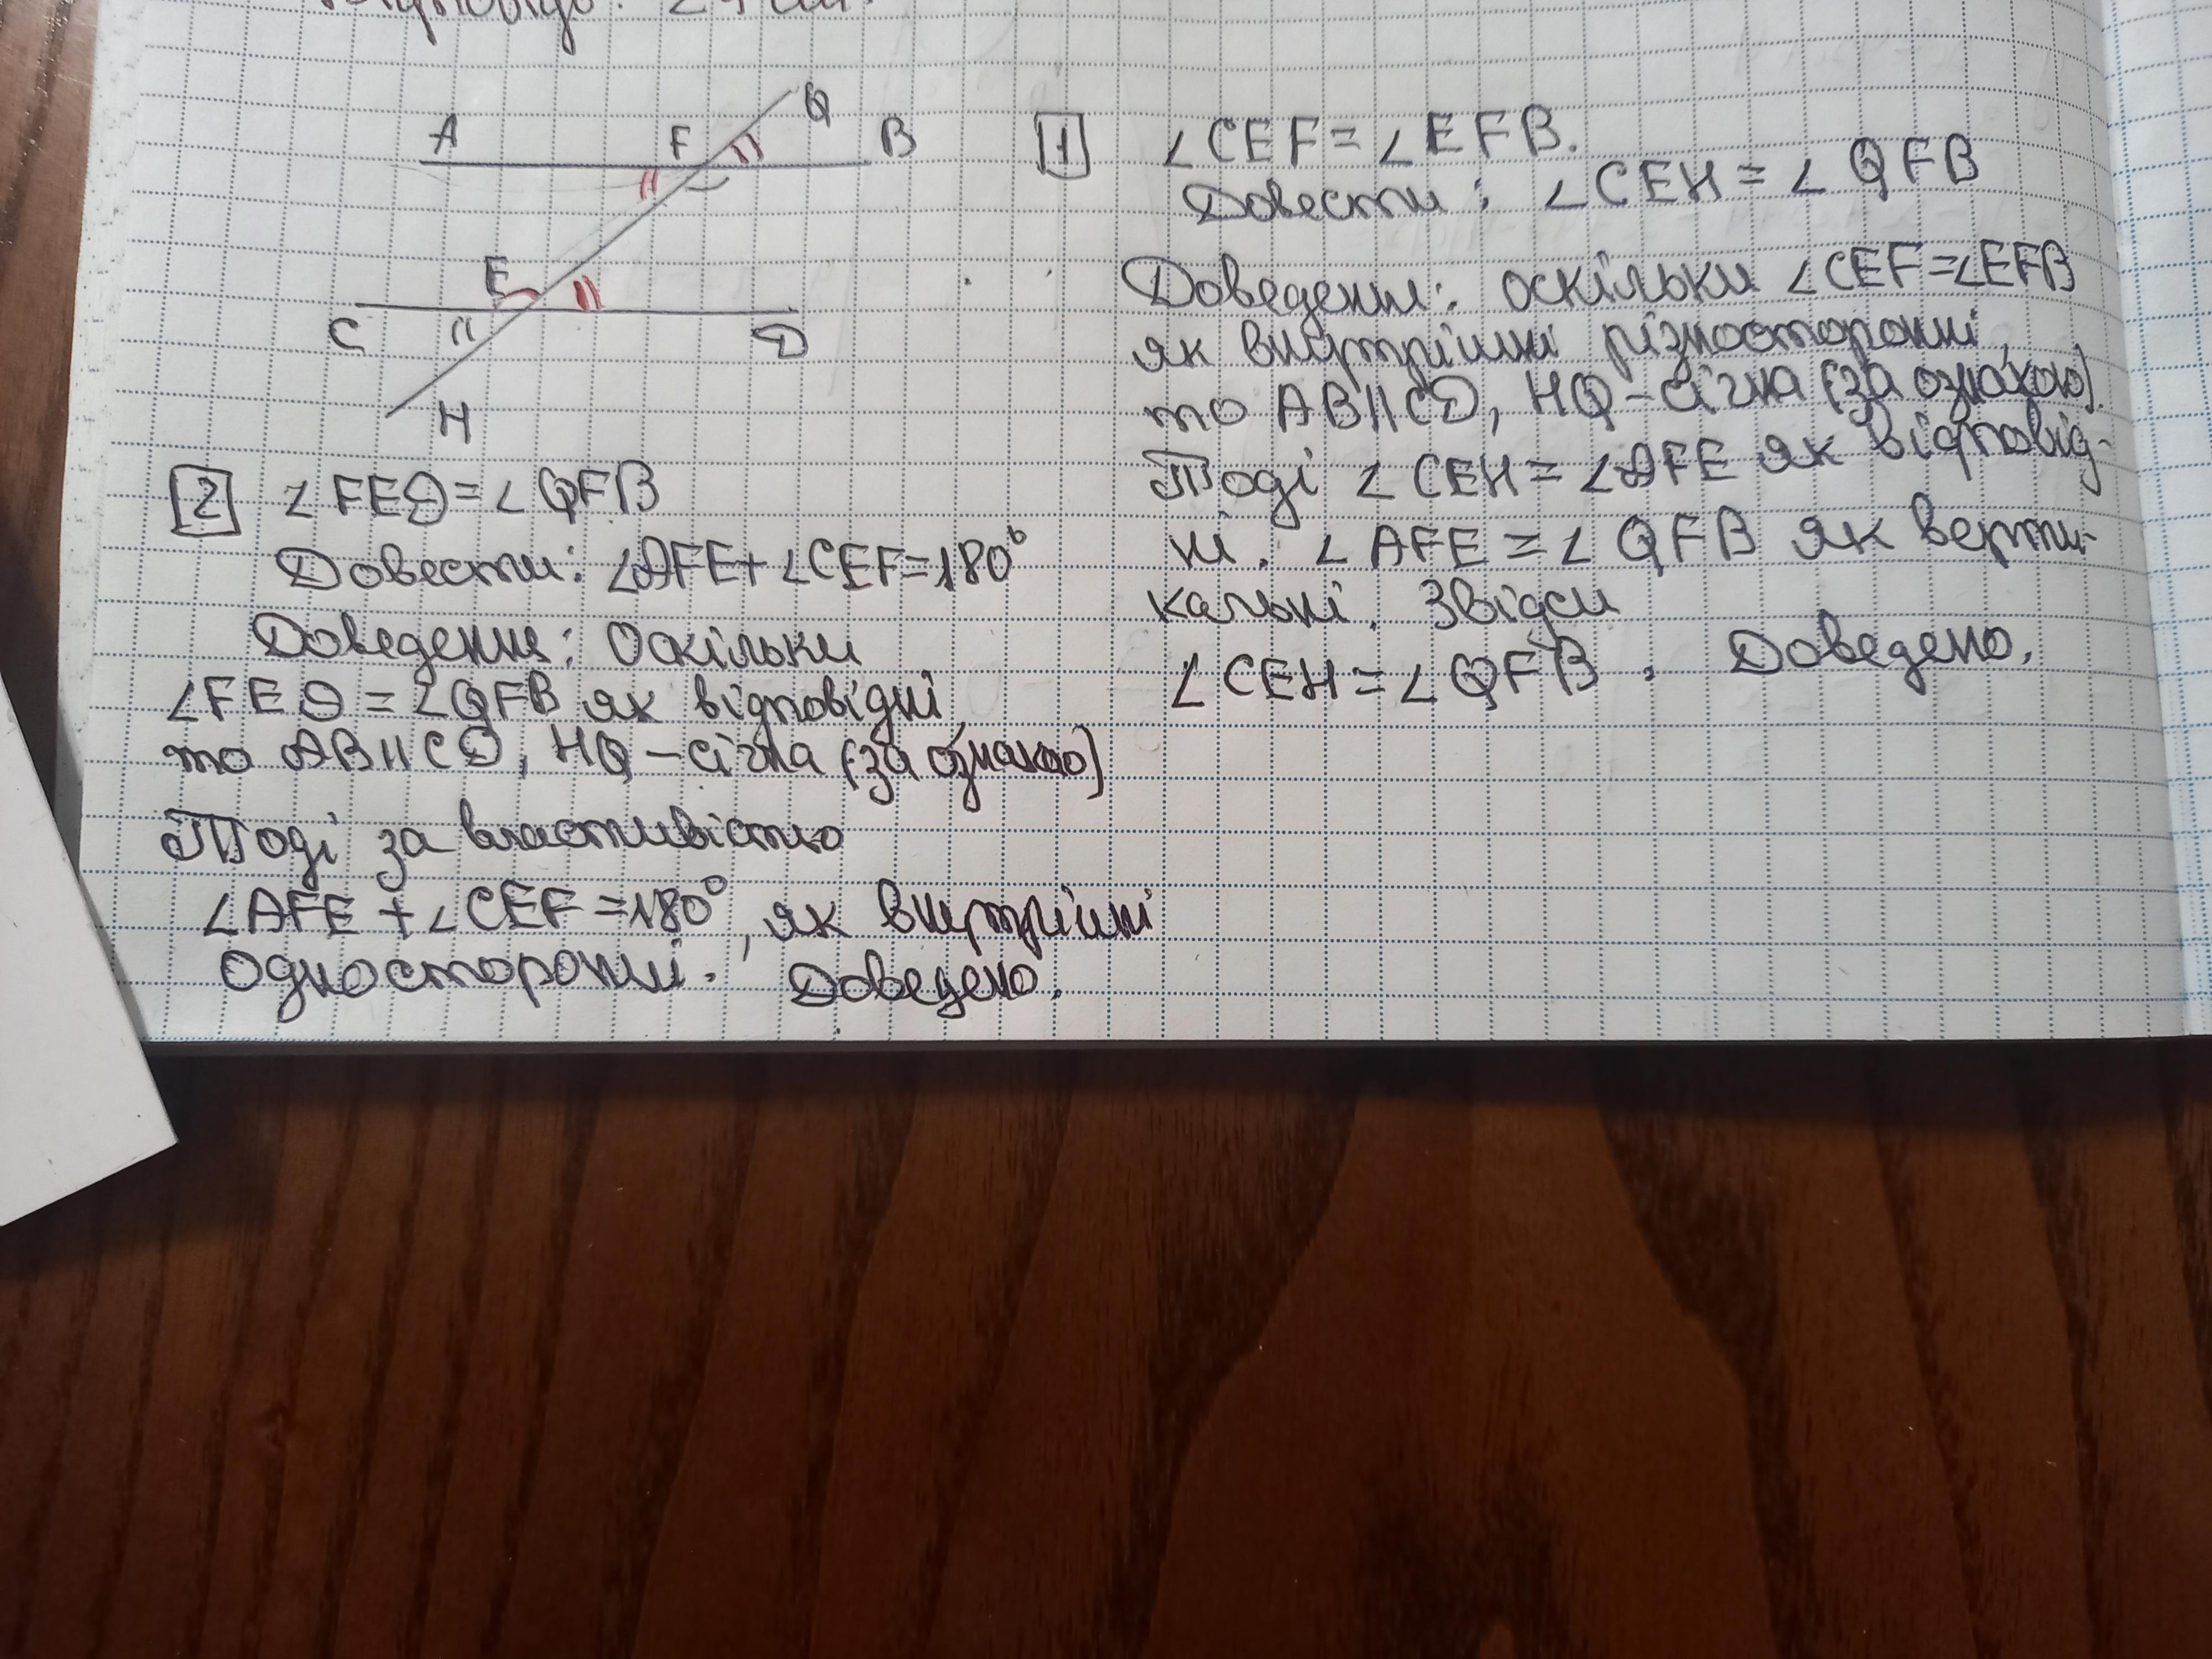 Відповідь: 24 см.
A F Q B
E
C D
H
1 ∠CEF = ∠EFB.
Довести: ∠CEH = ∠QFB
Доведення: оскільки ∠CEF = ∠EFB
як внутрішні різносторонні,
то AB || CD, HQ – січна (за ознакою).
Тоді ∠CEH = ∠AFE як відповід-
ні. ∠AFE = ∠QFB як верти-
кальні. Звідси
∠CEH = ∠QFB. Доведено.
2 ∠FED = ∠QFB
Довести: ∠AFE + ∠CEF = 180°
Доведення: Оскільки
∠FED = ∠QFB як відповідні,
то AB || CD, HQ – січна (за ознакою)
Тоді за властивістю
∠AFE + ∠CEF = 180°, як внутрішні
односторонні. Доведено.